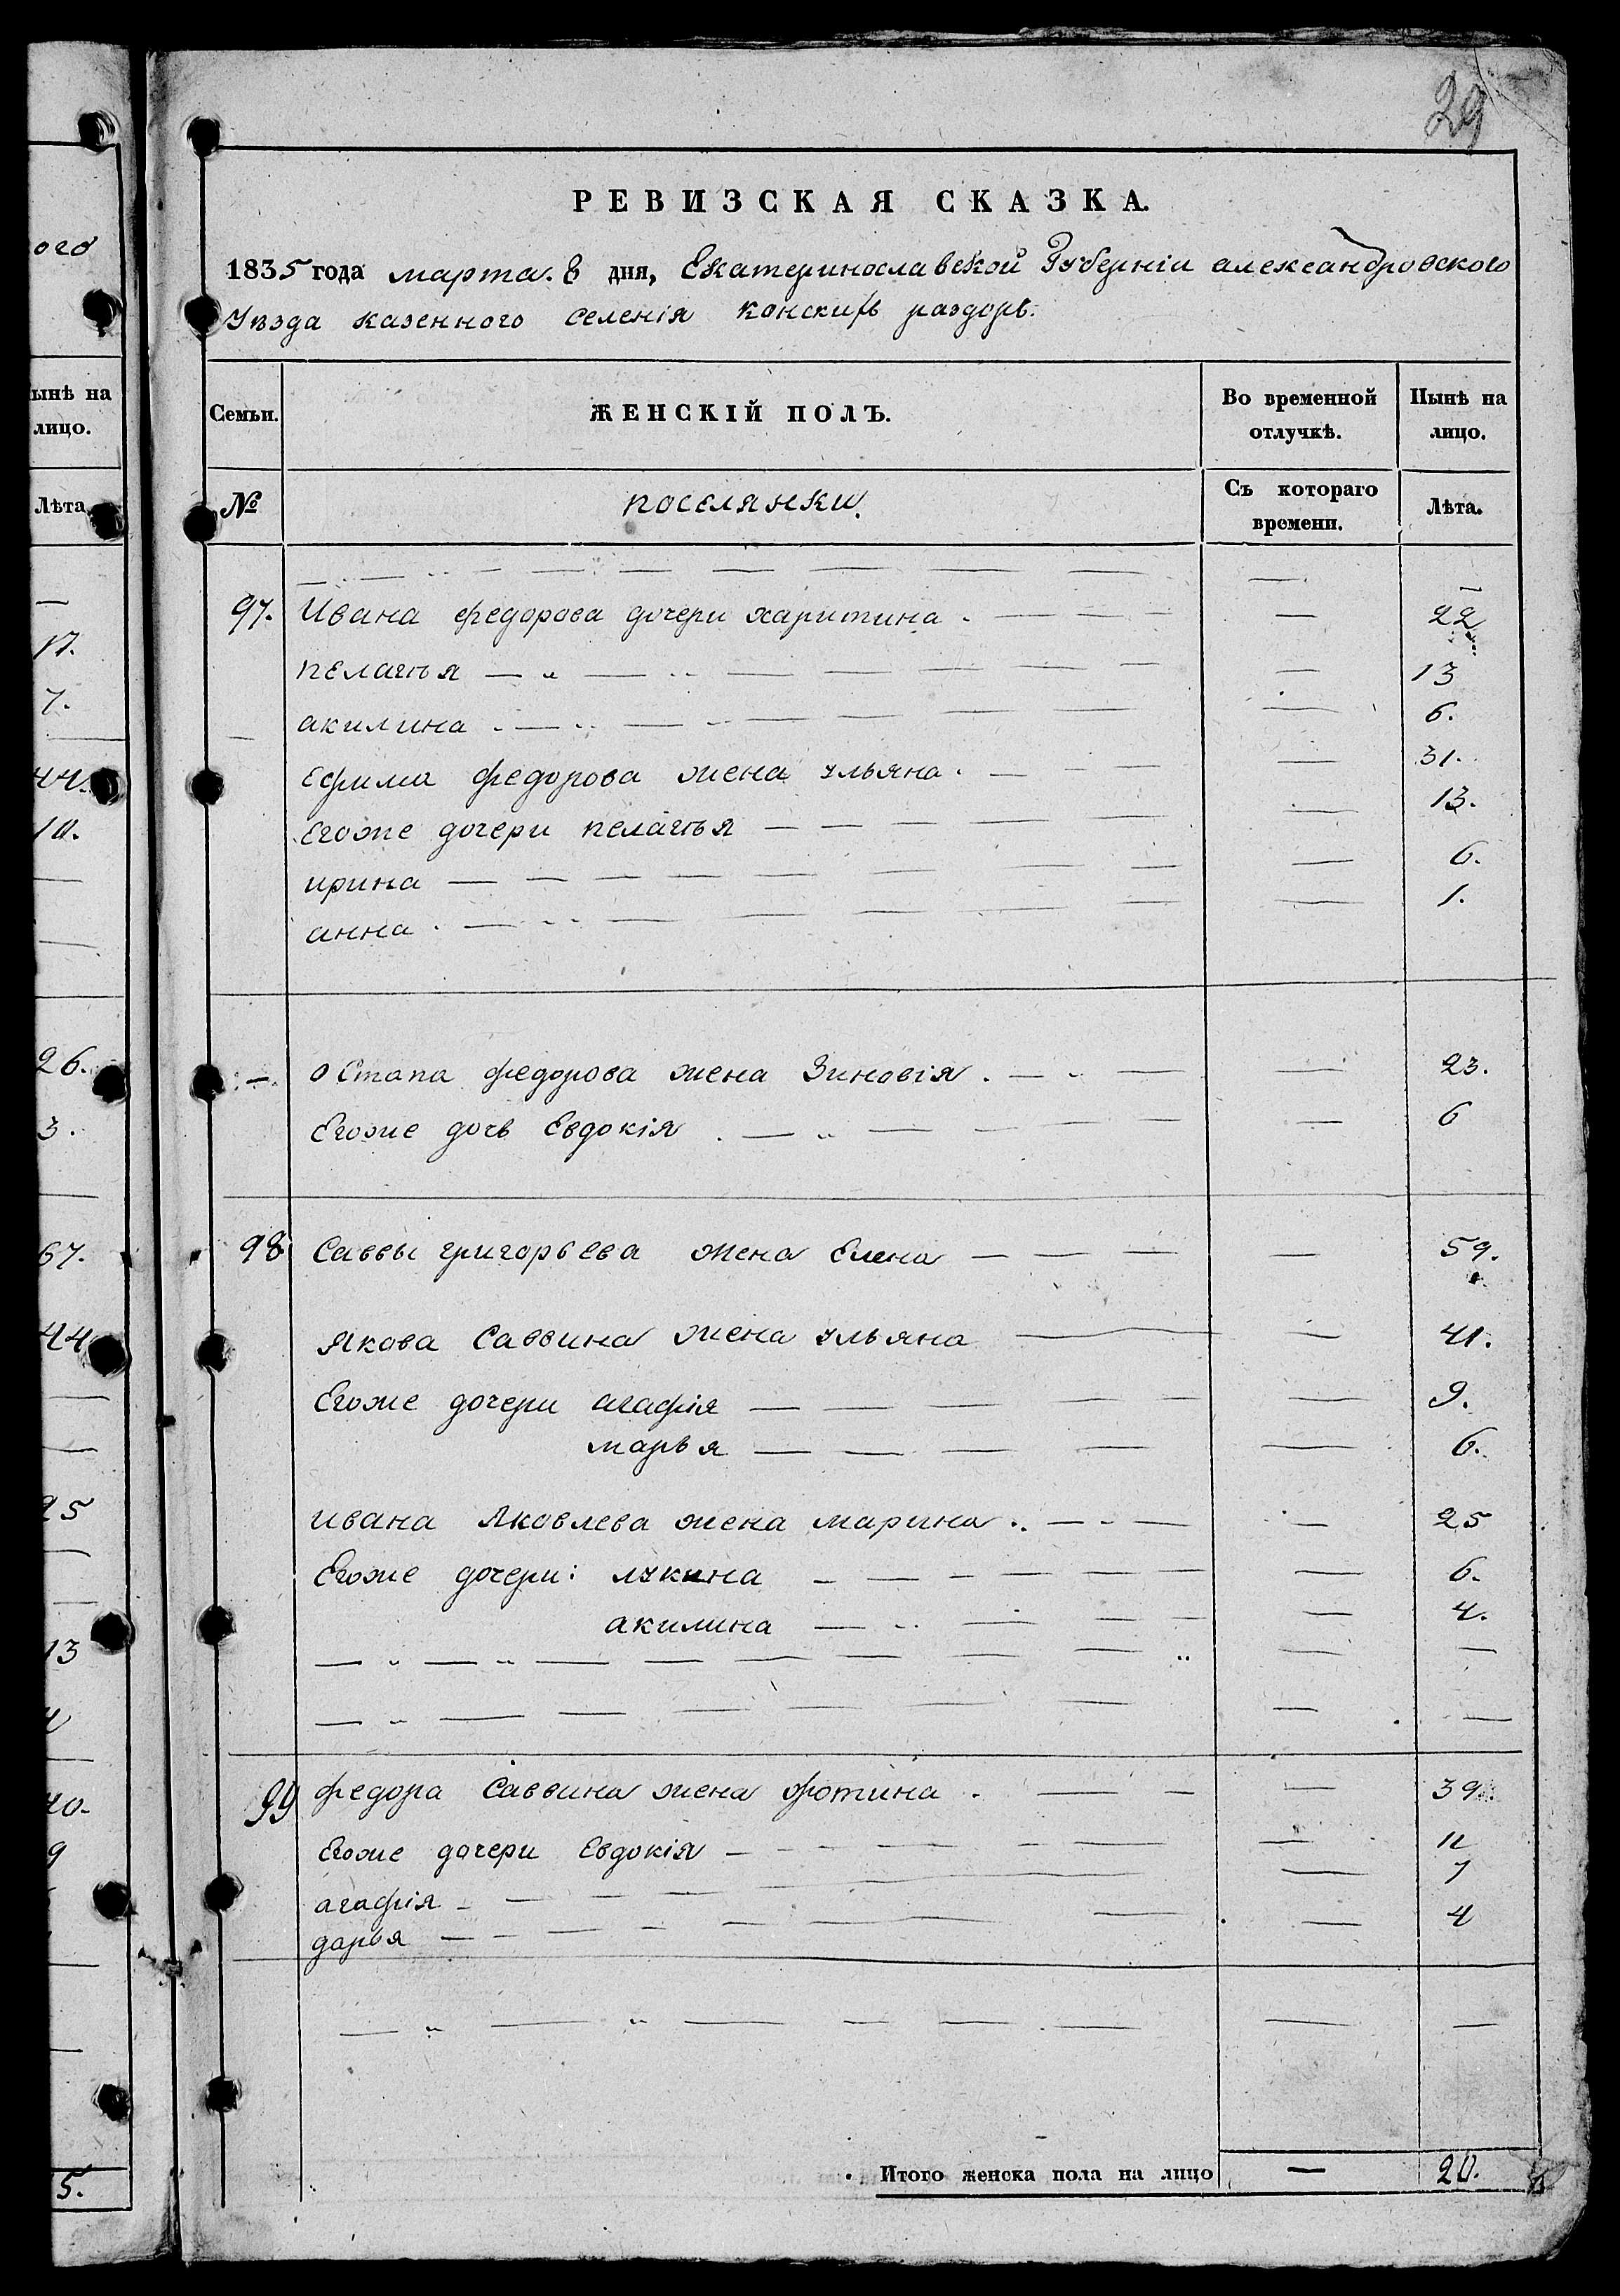 29
РЕВИЗСКАЯ СКАЗКА.
1835 года марта. 8 дня, Екатеринославской Губерніи александровского
Уѣзда казенного селенія конскихъ раздоръ.
Семьи. ЖЕНСКІЙ ПОЛЪ. Во временной отлучкѣ. Нынѣ на лицо.
№ поселянки. Съ котораго времени. Лѣта.
97. Ивана федорова дочери харитина. — 22
пелагѣя — 13
акилина — 6.
Ефима федорова жена ульяна. — 31.
Егоже дочери пелагѣя — 13.
ирина — 6.
анна. — 1.
— остапа федорова жена Зиновія. — 23.
Егоже дочь Евдокія. — 6
98 Саввы григорьева жена Елена — 59.
Якова Саввина жена ульяна — 41.
Егоже дочери агафія — 9.
марья — 6.
ивана Яковлева жена марина. — 25
Егоже дочери: лукина — 6.
акилина — 4.
99 федора Саввина жена фотина. — 39.
Егоже дочери Евдокія — 11
агафія — 7
дарья — 4
Итого женска пола на лицо — 20.
ого
ынѣ на
лицо.
Лѣта.
7.
44.
10.
26.
3.
67.
44
25
13
4
40.
9
5.